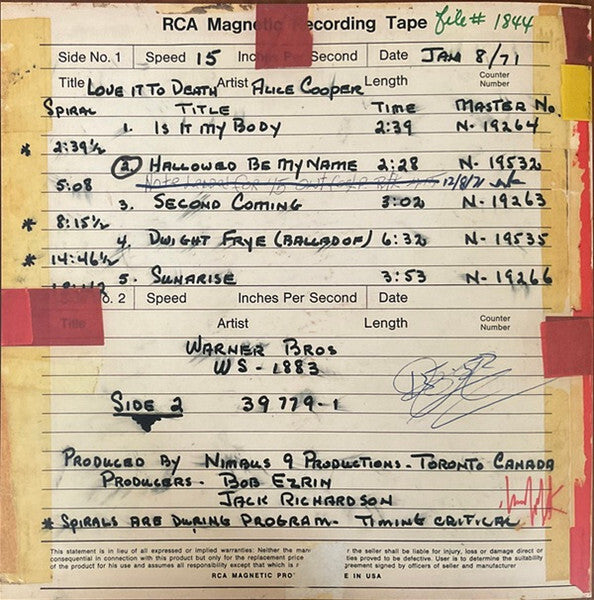 RCA Magnetic Recording Tape file # 1844
Side No. 1 Speed 15 Inches Per Second Date JAN 8/71
Title LOVE IT TO DEATH Artist ALICE COOPER Length Counter Number
SPIRAL TITLE TIME MASTER NO.
1. IS IT MY BODY 2:39 N-19264
* 2:39½
2. HALLOWED BE MY NAME 2:28 N-19532
5:08 12/8/71
3. SECOND COMING 3:02 N-19263
* 8:15½
4. DWIGHT FRYE (BALLAD OF) 6:32 N-19535
* 14:46½
5. SUNARISE 3:53 N-19266
o. 2 Speed Inches Per Second Date
Title Artist Length Counter Number
WARNER BROS
WS-1883
SIDE 2 39779-1
PRODUCED BY NIMBUS 9 PRODUCTIONS - TORONTO CANADA
PRODUCERS - BOB EZRIN
JACK RICHARDSON
* SPIRALS ARE DURING PROGRAM - TIMING CRITICAL
This statement is in lieu of all expressed or implied warranties: Neither the man r the seller shall be liable for injury, loss or damage direct or
consequential in connection with this product but only for the replacement price ties proved to be defective. User is to determine the suitability
of the product for his use and assumes all responsibility except that which is agreement signed by officers of seller and manufacturer
RCA MAGNETIC PRO E IN USA